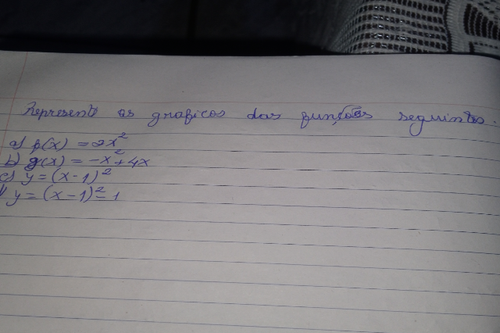 Represente os graficos das funções seguintes.
a) f(x) = 2x²
b) g(x) = -x² + 4x
c) y = (x - 1)²
y = (x - 1)² - 1